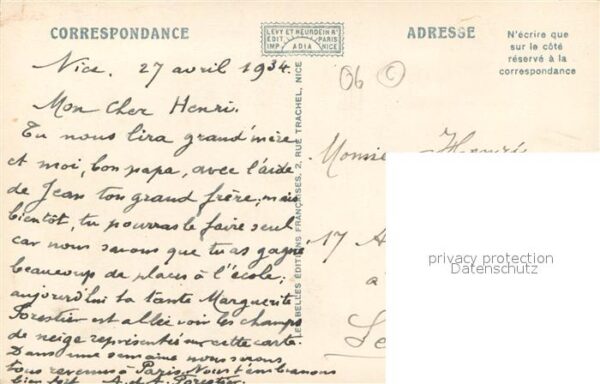 CORRESPONDANCE
LEVY ET NEURDEIN Rs
EDIT. PARIS
IMP. ADIA NICE
ADRESSE
N'écrire que
sur le côté
réservé à la
correspondance
Nice. 27 avril 1934.
06
Mon cher Henri.
Tu nous lira grand'mère
et moi, bon papa, avec l'aide
de Jean ton grand frère, mais
bientôt, tu pourras le faire seul
car nous savons que tu as gagné
beaucoup de places à l'école;
aujourd'hui ta tante Marguerite
Forestier est allée voir les champs
de neige représentés sur cette carte.
Dans une semaine nous serons
tous revenus à Paris. Nous t'embrassons
bien fort. A. et A. Forestier.
LES BELLES ÉDITIONS FRANÇAISES, 2, RUE TRACHEL, NICE
Monsieur Henri
17 A
privacy protection
Datenschutz